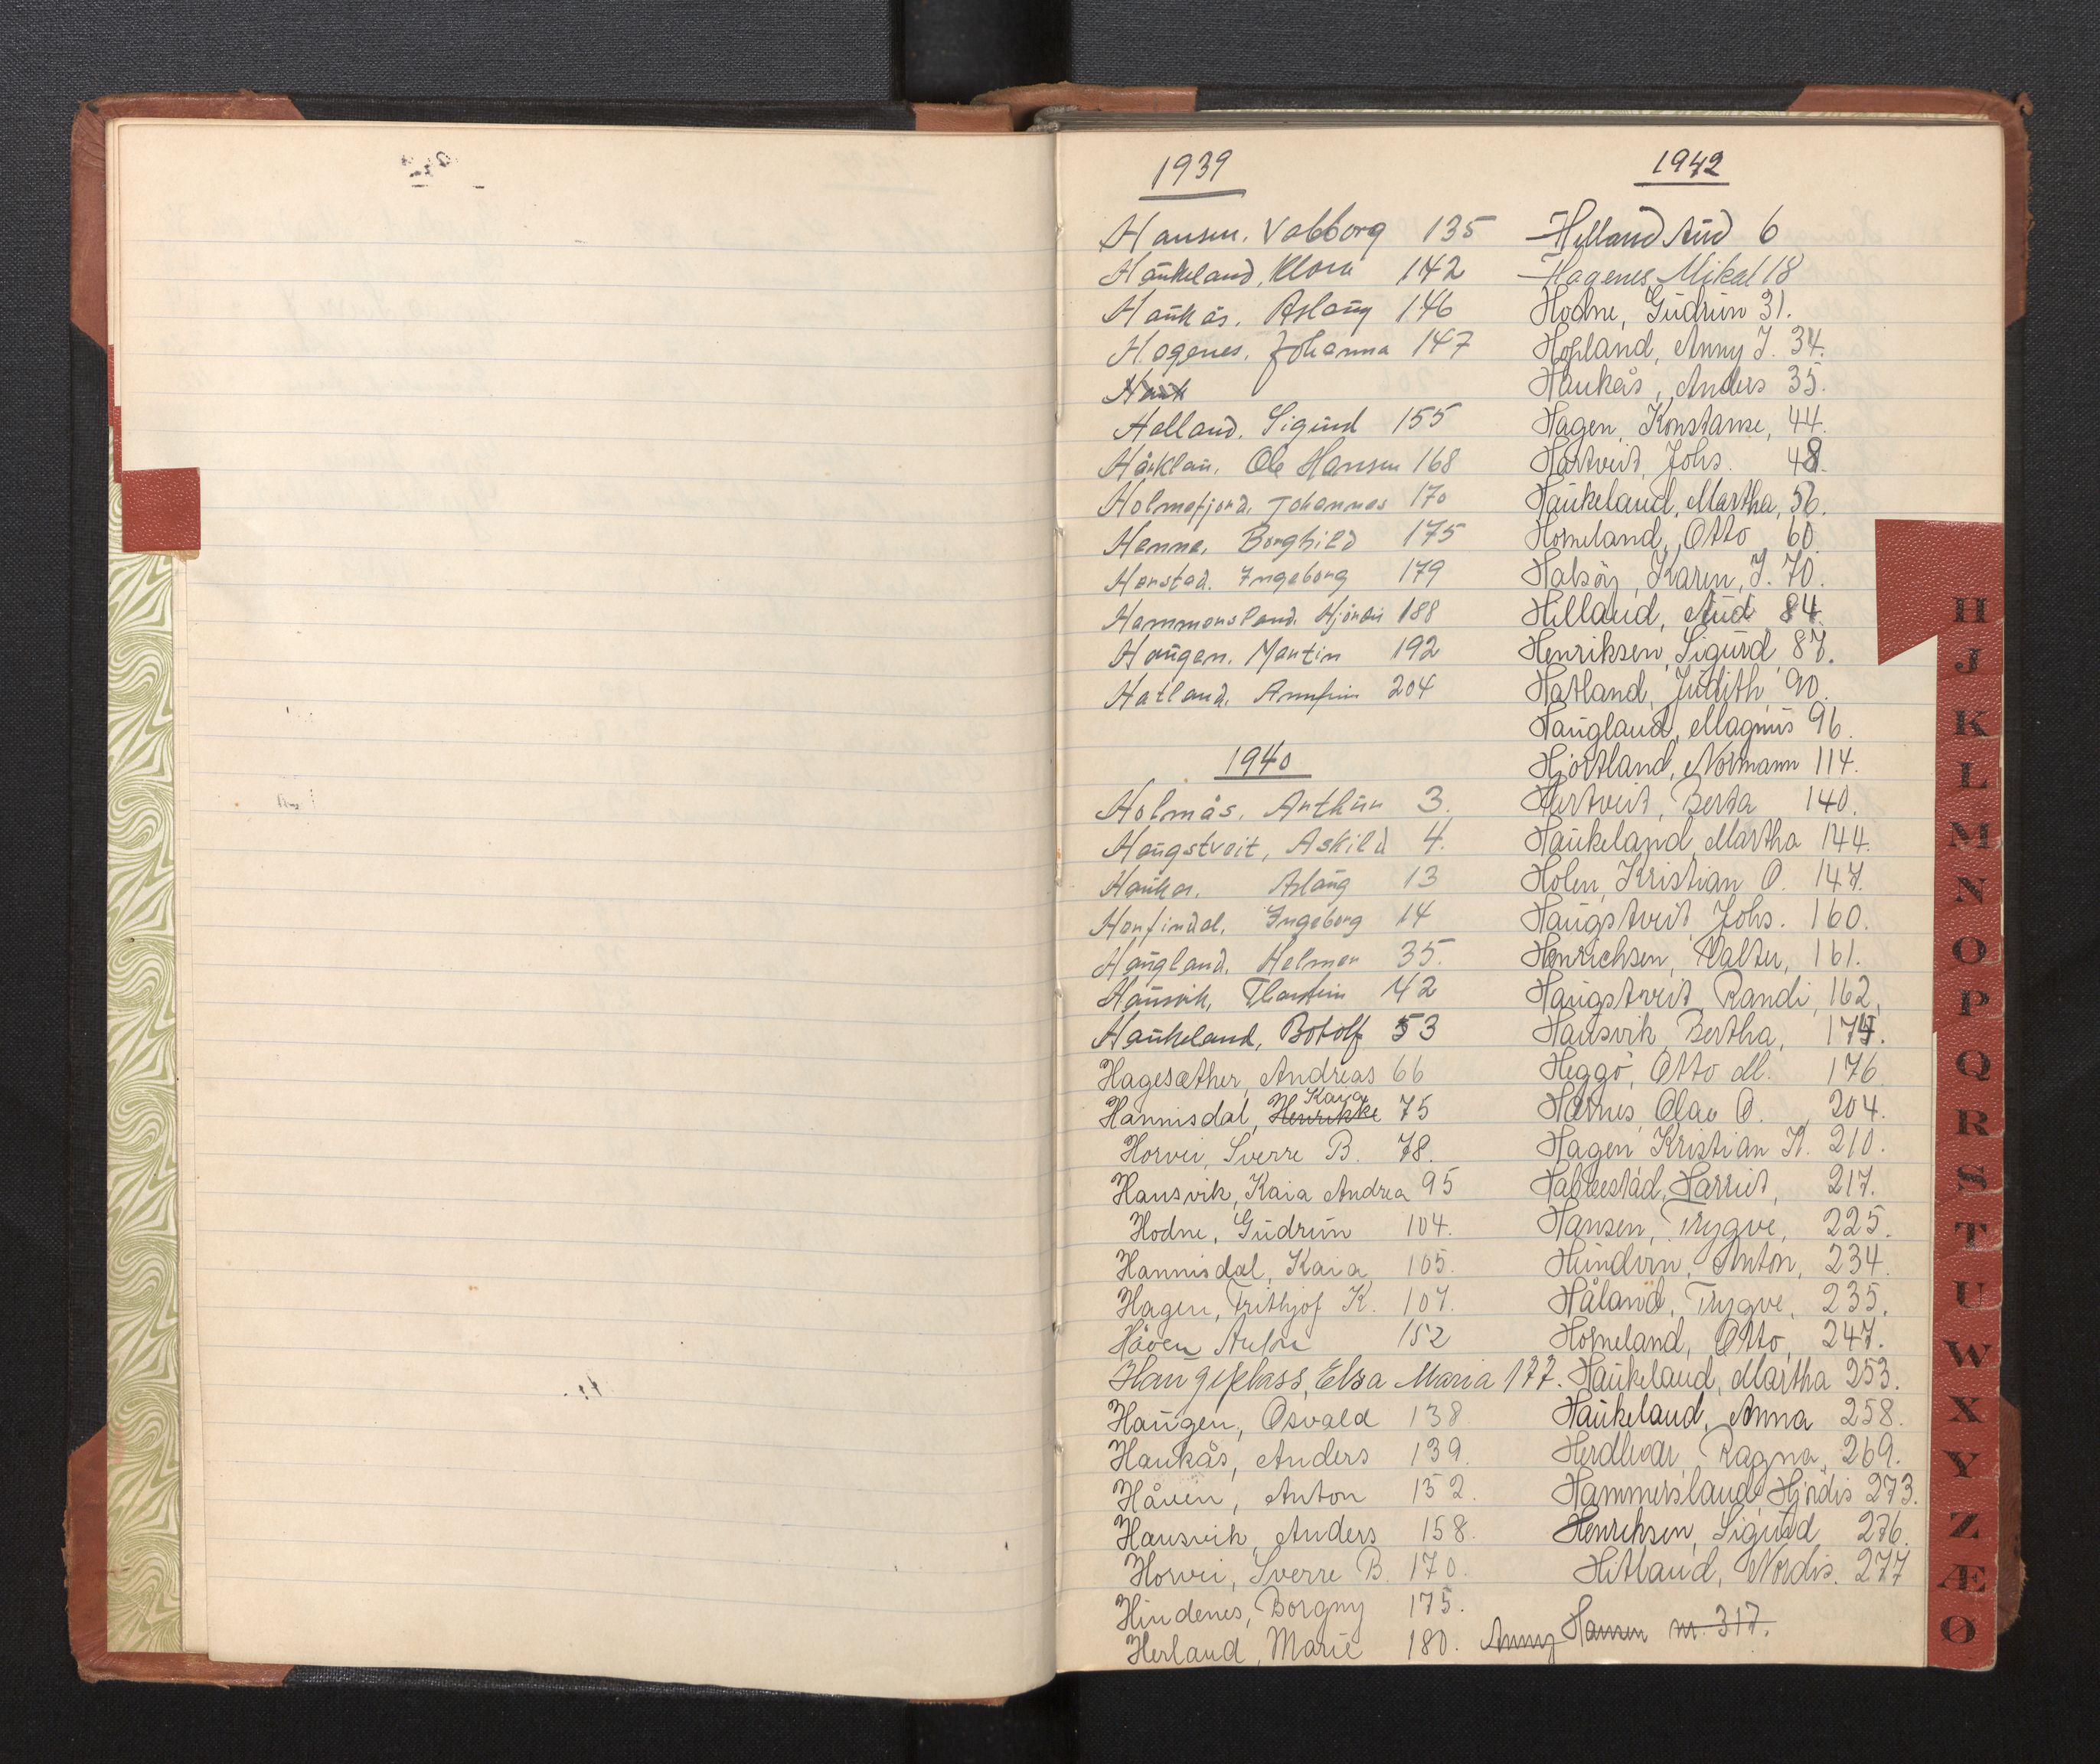 1939
Hansen. Valborg 135
Haukeland, Klara 142
Haukås. Aslaug 146
Hagenes. Johanna 147
Hauk
Helland. Sigurd 155
Ole Hansen 168
Holmefjord. Johannes 170
Henne. Borghild 175
Herstad. Ingeborg 179
Hammersland. Hjördis 188
Haugen. Martin 192
Hatland. Arnfinn 204
1940
Holmås. Arthur 3.
Haugstveit, Askild 4.
Haukås. Aslaug 13
Honfindal. Ingeborg 14
Haugland. Helmer 35.
Hausvik, Thorstein 42
Haukeland, Botolf 53
Hagesæther, Andreas 66
Kaia
Hannisdal, Henrikke 75
Horvei, Sverre B. 78.
Hausvik, Kaia Andrea 95
Hodne, Gudrun 104.
Hannisdal, Kaia 105.
Hagen, Frithjof K. 107.
Håven Anton 152
Haugeplass, Elsa Maria 177.
Haugen, Osvald 138
Haukås, Anders 139.
Håven, Anton 152.
Hausvik, Anders 158.
Horvei, Sverre B. 170.
Hindenes, Borgny 175.
Herland, Marie 180.
1942
Helland Aud 6
Hagenes Mikal 18
Hodne, Gudrun 31.
Hopland, Anny J. 34.
Haukås, Anders 35.
Hagen, Konstanse, 44.
Hartveit, Johs. 48.
Haukeland, Martha, 56.
Homeland, Otto 60.
Halsöy, Karen, J. 70.
Hilland, Aud 84.
Henriksen, Sigurd 87.
Hatland, Judith, 90.
Haugland, Magnus 96.
Hjortland, Normann 114.
Hartveit, Berta 140.
Haukeland, Martha 144.
Holen, Kristian O. 147.
Haugstveit, Johs. 160.
Henrichsen, Valter, 161.
Haugstveit, Randi, 162,
Hausvik, Bertha, 174.
Heggö, Otto M. 176
Hernes, Olav O. 204.
Hagen, Kristian K. 210.
Harriet, 217.
Hansen, Trygve, 225.
Hundvin, Anton, 234.
Håland, Trygve, 235.
Homeland, Otto, 247.
Haukeland, Martha 253.
Haukeland, Anna 258.
Herdlevær, Ragna, 269.
Hammersland, Hjördis 273.
Henriksen, Sigurd 276.
Hitland, Nordis. 277
Anny Hansen nr. 317.
H
J
K
L
M
N
O
P
Q
R
S
T
U
W
X
Y
Z
Æ
Ø